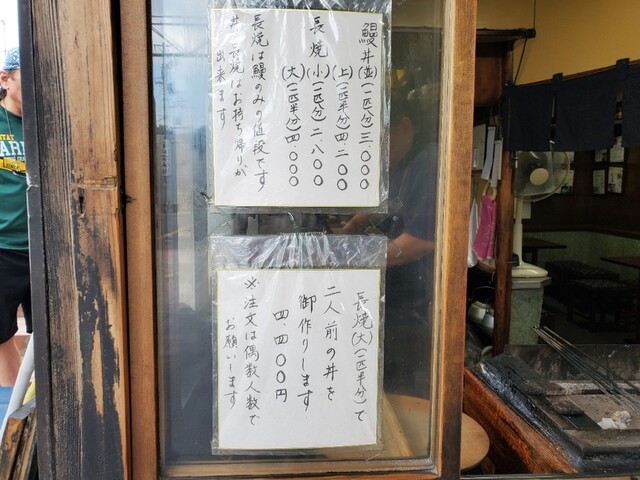 鰻丼(並)(一匹分)三.〇〇〇
(上)(一匹半分)四.二〇〇
長焼(小)(一匹分)二.八〇〇
(大)(一匹半分)四.〇〇〇
長焼は鰻のみの値段です
丼、長焼はお持ち帰りが
出来ます
長焼(大)(一匹半分)で
二人前の丼を
御作りします
四.四〇〇円
※注文は偶数人数で
お願いします